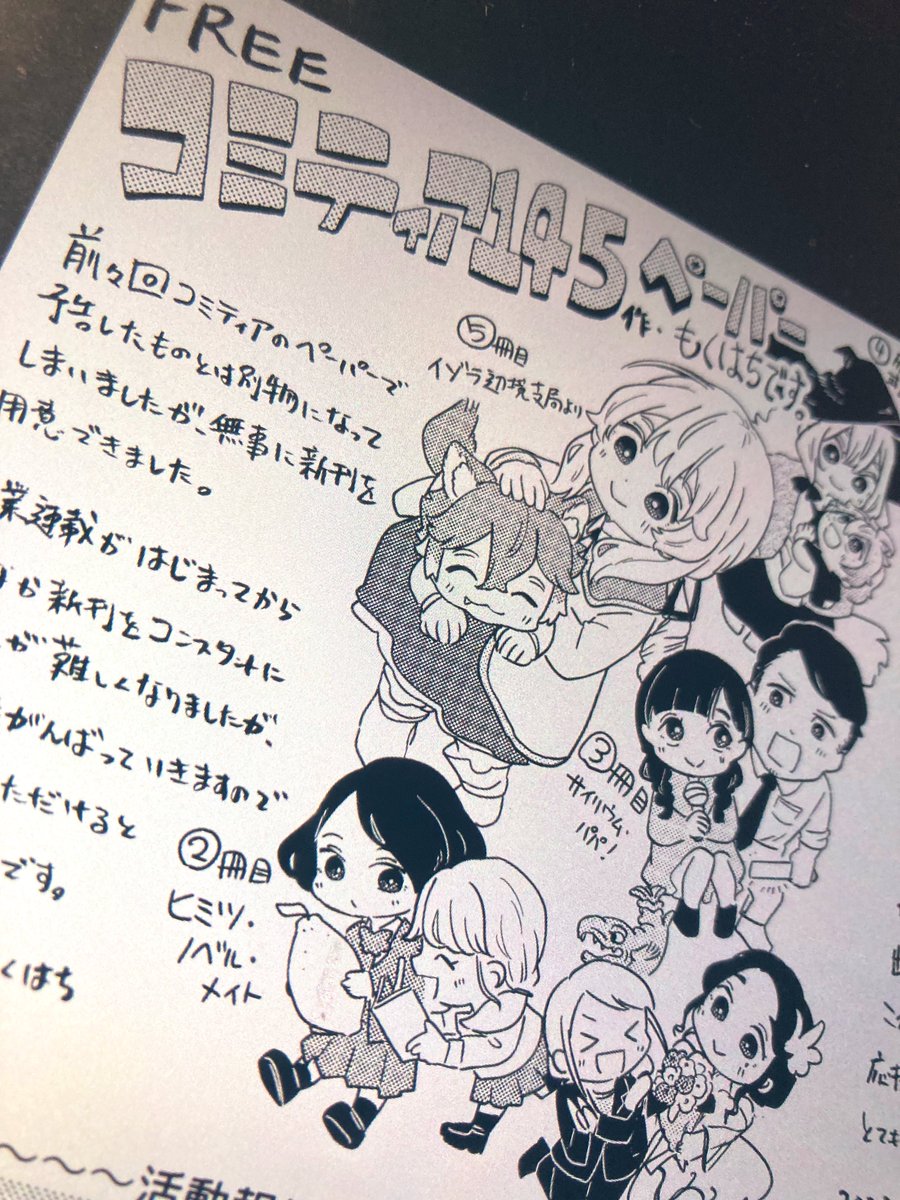 FREE
コミティア145ペーパー
作・もくはちです。
前々回コミティアのペーパーで
予告したものとは別物になって
しまいましたが、無事に新刊を
用意できました。
業連載がはじまってから
か新刊をコンスタントに
が難しくなりましたが、
がんばっていきますので
ただけると
です。
くはち
⑤冊目
イゾラ辺境支局より
④
③冊目
サイハウム・
パペ!
②冊目
ヒミツ・
ノベル・
メイト
とても
〜〜〜活動報